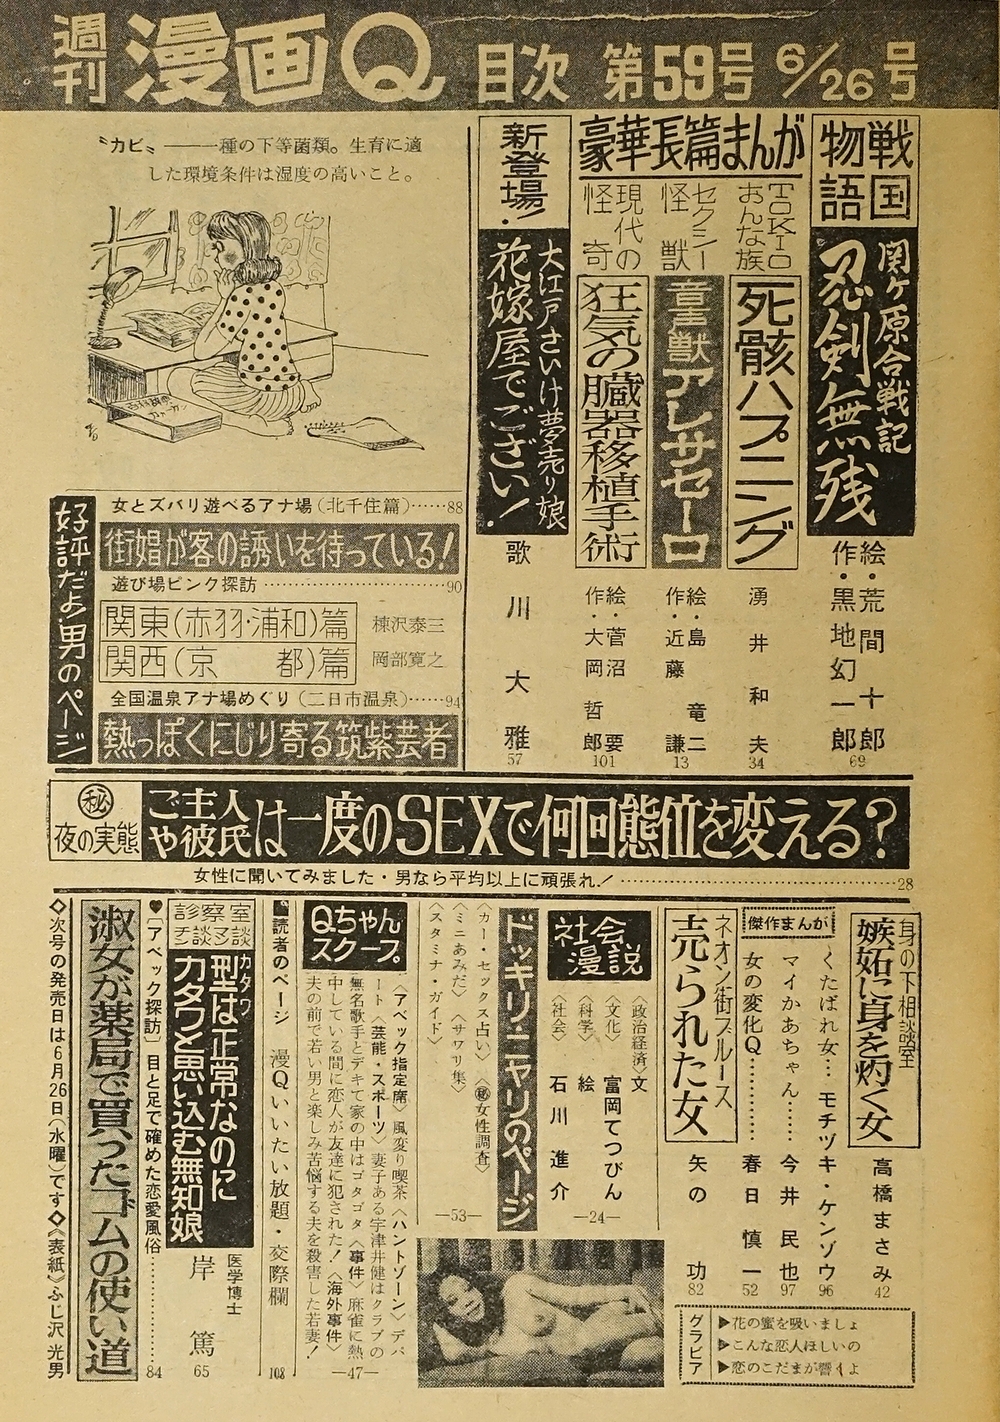 週刊 漫画Q 目次 第59号 6/26号
戦国物語
関ケ原合戦記
忍剣無残
絵・荒間十郎
作・黒地幻一郎
69
豪華長篇まんが
TOKIOおんな族
死骸ハプニング
湧井和夫
34
セクシー怪獣
音獣アレサセーロ
絵・島竜二
作・近藤謙
13
現代の怪奇
狂気の臓器移植手術
絵・菅沼要
作・大岡哲郎
101
新登場!
大江戸さいけ夢売り娘
花嫁屋でござい!
歌川大雅
57
〝カビ〟――一種の下等菌類。生育に適
した環境条件は湿度の高いこと。
好評だよ!男のページ
女とズバリ遊べるアナ場(北千住篇)……88
街娼が客の誘いを待っている!
遊び場ピンク探訪……90
関東(赤羽・浦和)篇 棟沢泰三
関西(京都)篇 岡部寛之
全国温泉アナ場めぐり(二日市温泉)……94
熱っぽくにじり寄る筑紫芸者
㊙夜の実態
ご主人や彼氏は一度のSEXで何回態位を変える?
女性に聞いてみました・男なら平均以上に頑張れ!……28
身の下相談室
嫉妬に身を灼く女
高橋まさみ
42
傑作まんが
くたばれ女…モチヅキ・ケンゾウ
96
マイかあちゃん……今井民也
97
女の変化Q………春日慎一
52
ネオン街ブルース
売られた女
矢の功
82
グラビア
▶花の蜜を吸いましょ
▶こんな恋人ほしいの
▶恋のこだまが響くよ
社会漫説
〈政治経済〉
〈文化〉
〈科学〉
〈社会〉
文 富岡てつびん
絵 石川進介
―24―
ドッキリ・ニヤリのページ
〈カー・セックス占い〉〈㊙女性調査〉
〈ミニあみだ〉〈サワリ集〉
〈スタミナ・ガイド〉
―53―
Qちゃんスクープ
〈アベック指定席〉風変り喫茶〈ハントゾーン〉デパ
ート〈芸能・スポーツ〉妻子ある宇津井健はクラブの
無名歌手とデキて家の中はゴタゴタ〈事件〉麻雀に熱
中している間に恋人が友達に犯された!〈海外事件〉
夫の前で若い男と楽しみ苦悩する夫を殺害した若妻!
―47―
読者のページ 漫Qいいたい放題・交際欄
108
診察室チン談マン談
型は正常なのに
カタワ
カタワと思い込む無知娘
医学博士 岸篤
65
♥〔アベック探訪〕目と足で確めた恋愛風俗………84
淑女が薬局で買ったゴムの使い道
◇次号の発売日は6月26日(水曜)です◇《表紙》ふじ沢光男